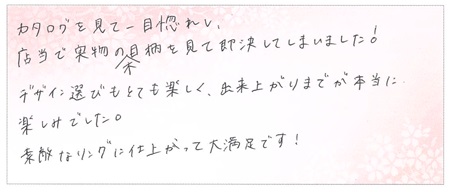 カタログを見て一目惚れし、
店当で実物の木目柄を見て即決してしまいました!
デザイン選びもとても楽しく、出来上がりまでが本当に
楽しみでした。
素敵なリングに仕上がって大満足です!